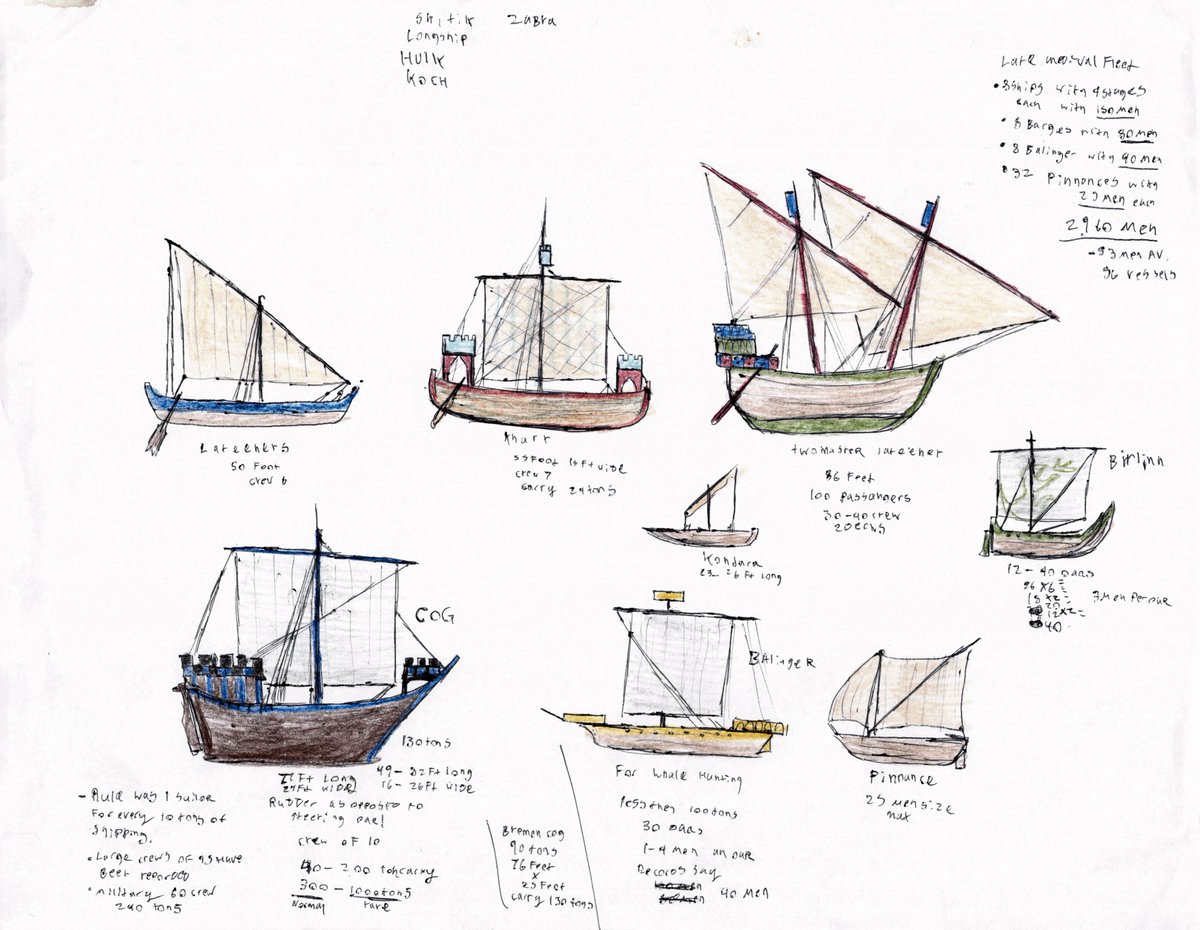 Zabra
Longship
HUlK
KOCH
Late medival Fleet
• 8ships with 4stages
each with 150 MEN
• 8 Barges with 80 MEN
• 8 Balinger with 40 MEN
• 32 Pinnances with
25 MEN each
2,960 MEN
- 53 MEN AV.
56 vessels
Lateeners
50 Foot
crew 6
knarr
55 Foot 15 Ft wide
crew 7
carry 24 tons
twomaster lateener
86 Feet
100 passangers
30-40 crew
Birlinn
12 - 40 oars
3 MEN Per oar
Kondura
23- 26 Ft long
COG
130 tons
77 Ft LONG
27 Ft wide
49 - 82 Ft LONG
16 - 26 Ft wide
Rudder as opposed to
steering oar!
crew of 10
40 - 200 ton carry
300 - 1000 tons
Normal rare
- Rule was 1 sailor
For every 10 tons of
shipping.
• Large crews of 45 have
Been recorded
• Military 60 crew
240 tons
Bremen cog
90 tons
76 Feet
x
25 Feet
carry 130 tons
BAlingeR
For whale Hunting
less then 100 tons
30 oars
1-4 Men an our
Records say
40 MEN
Pinnance
25 MEN size
max